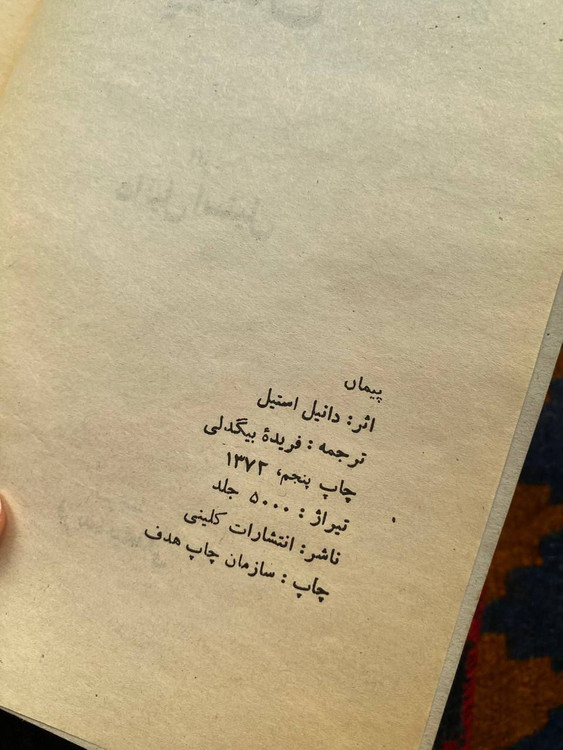 پیمان
اثر: دانیل استیل
ترجمه: فریدهٔ بیگدلی
چاپ پنجم، ۱۳۷۲
تیراژ: ۵۰۰۰ جلد
ناشر: انتشارات کلینی
چاپ: سازمان چاپ هدف